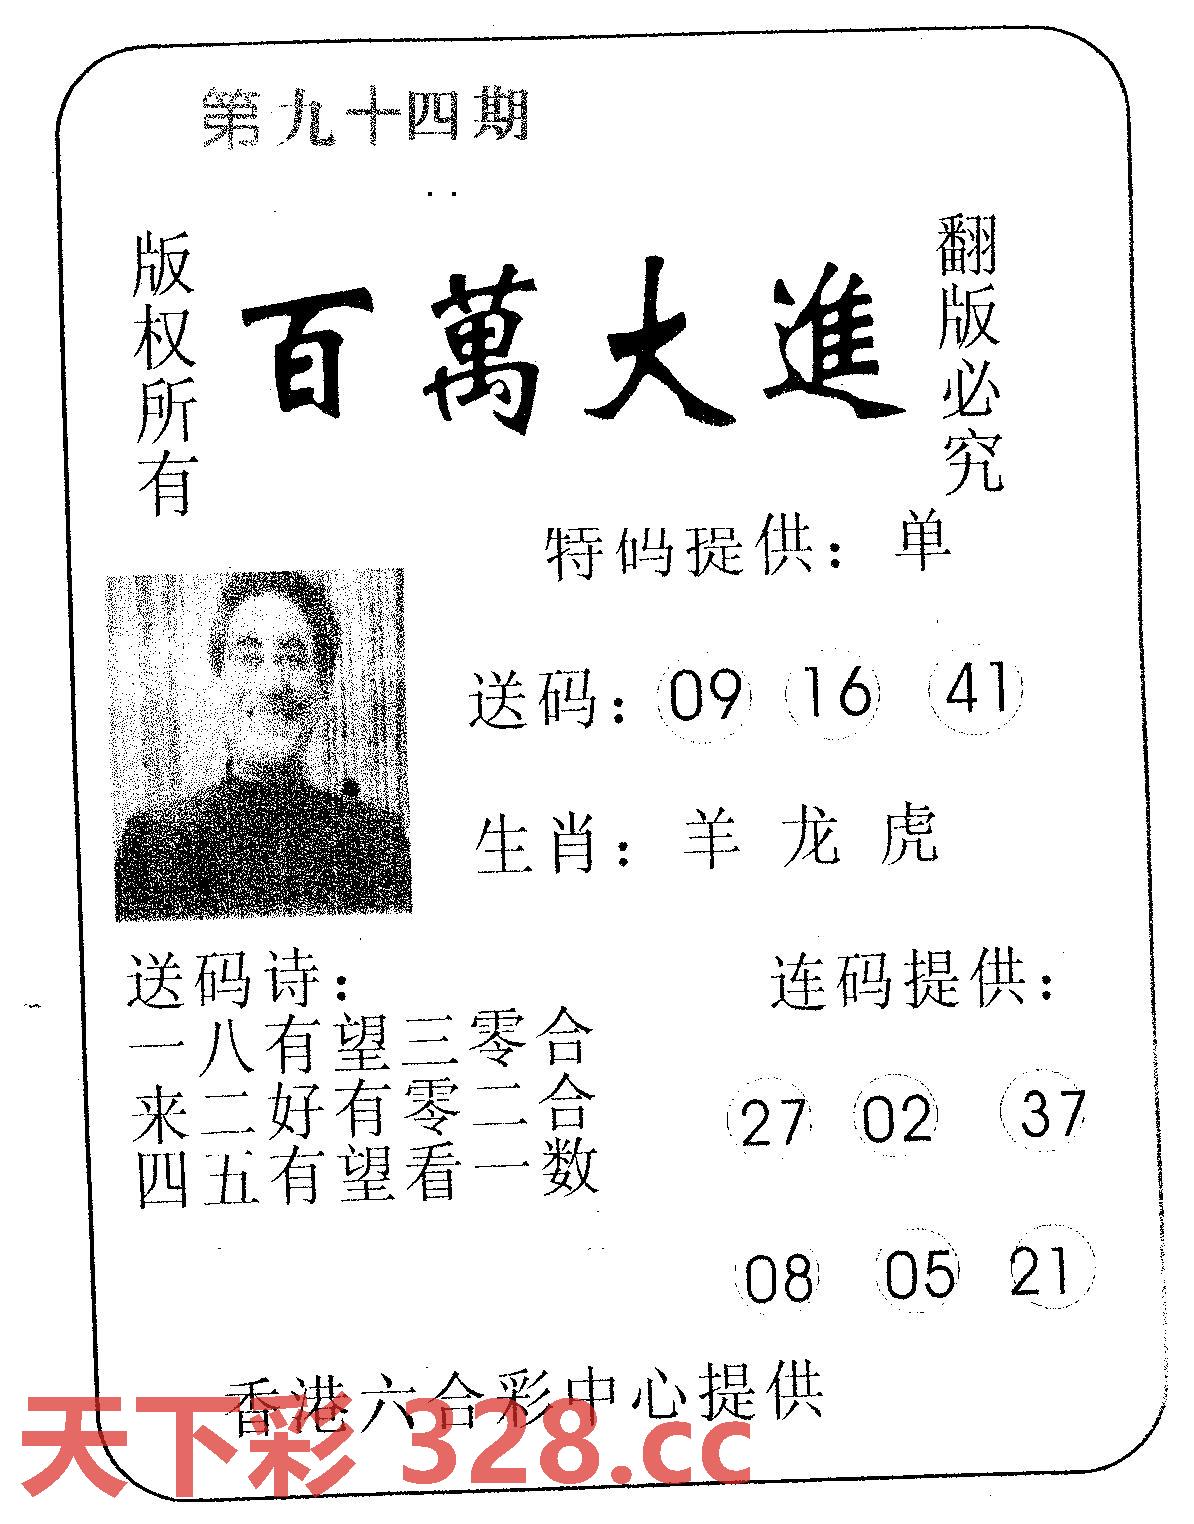 第九十四期
版权所有
百萬大進
翻版必究
特码提供：单
送码：09 16 41
生肖：羊 龙 虎
送码诗：
一八有望三零合
来二好有零二合
四五有望看一数
连码提供：
27 02 37
08 05 21
香港六合彩中心提供
天下彩 328.cc